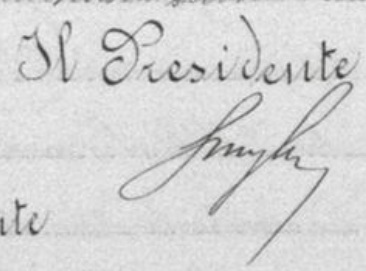 Il Presidente
nte